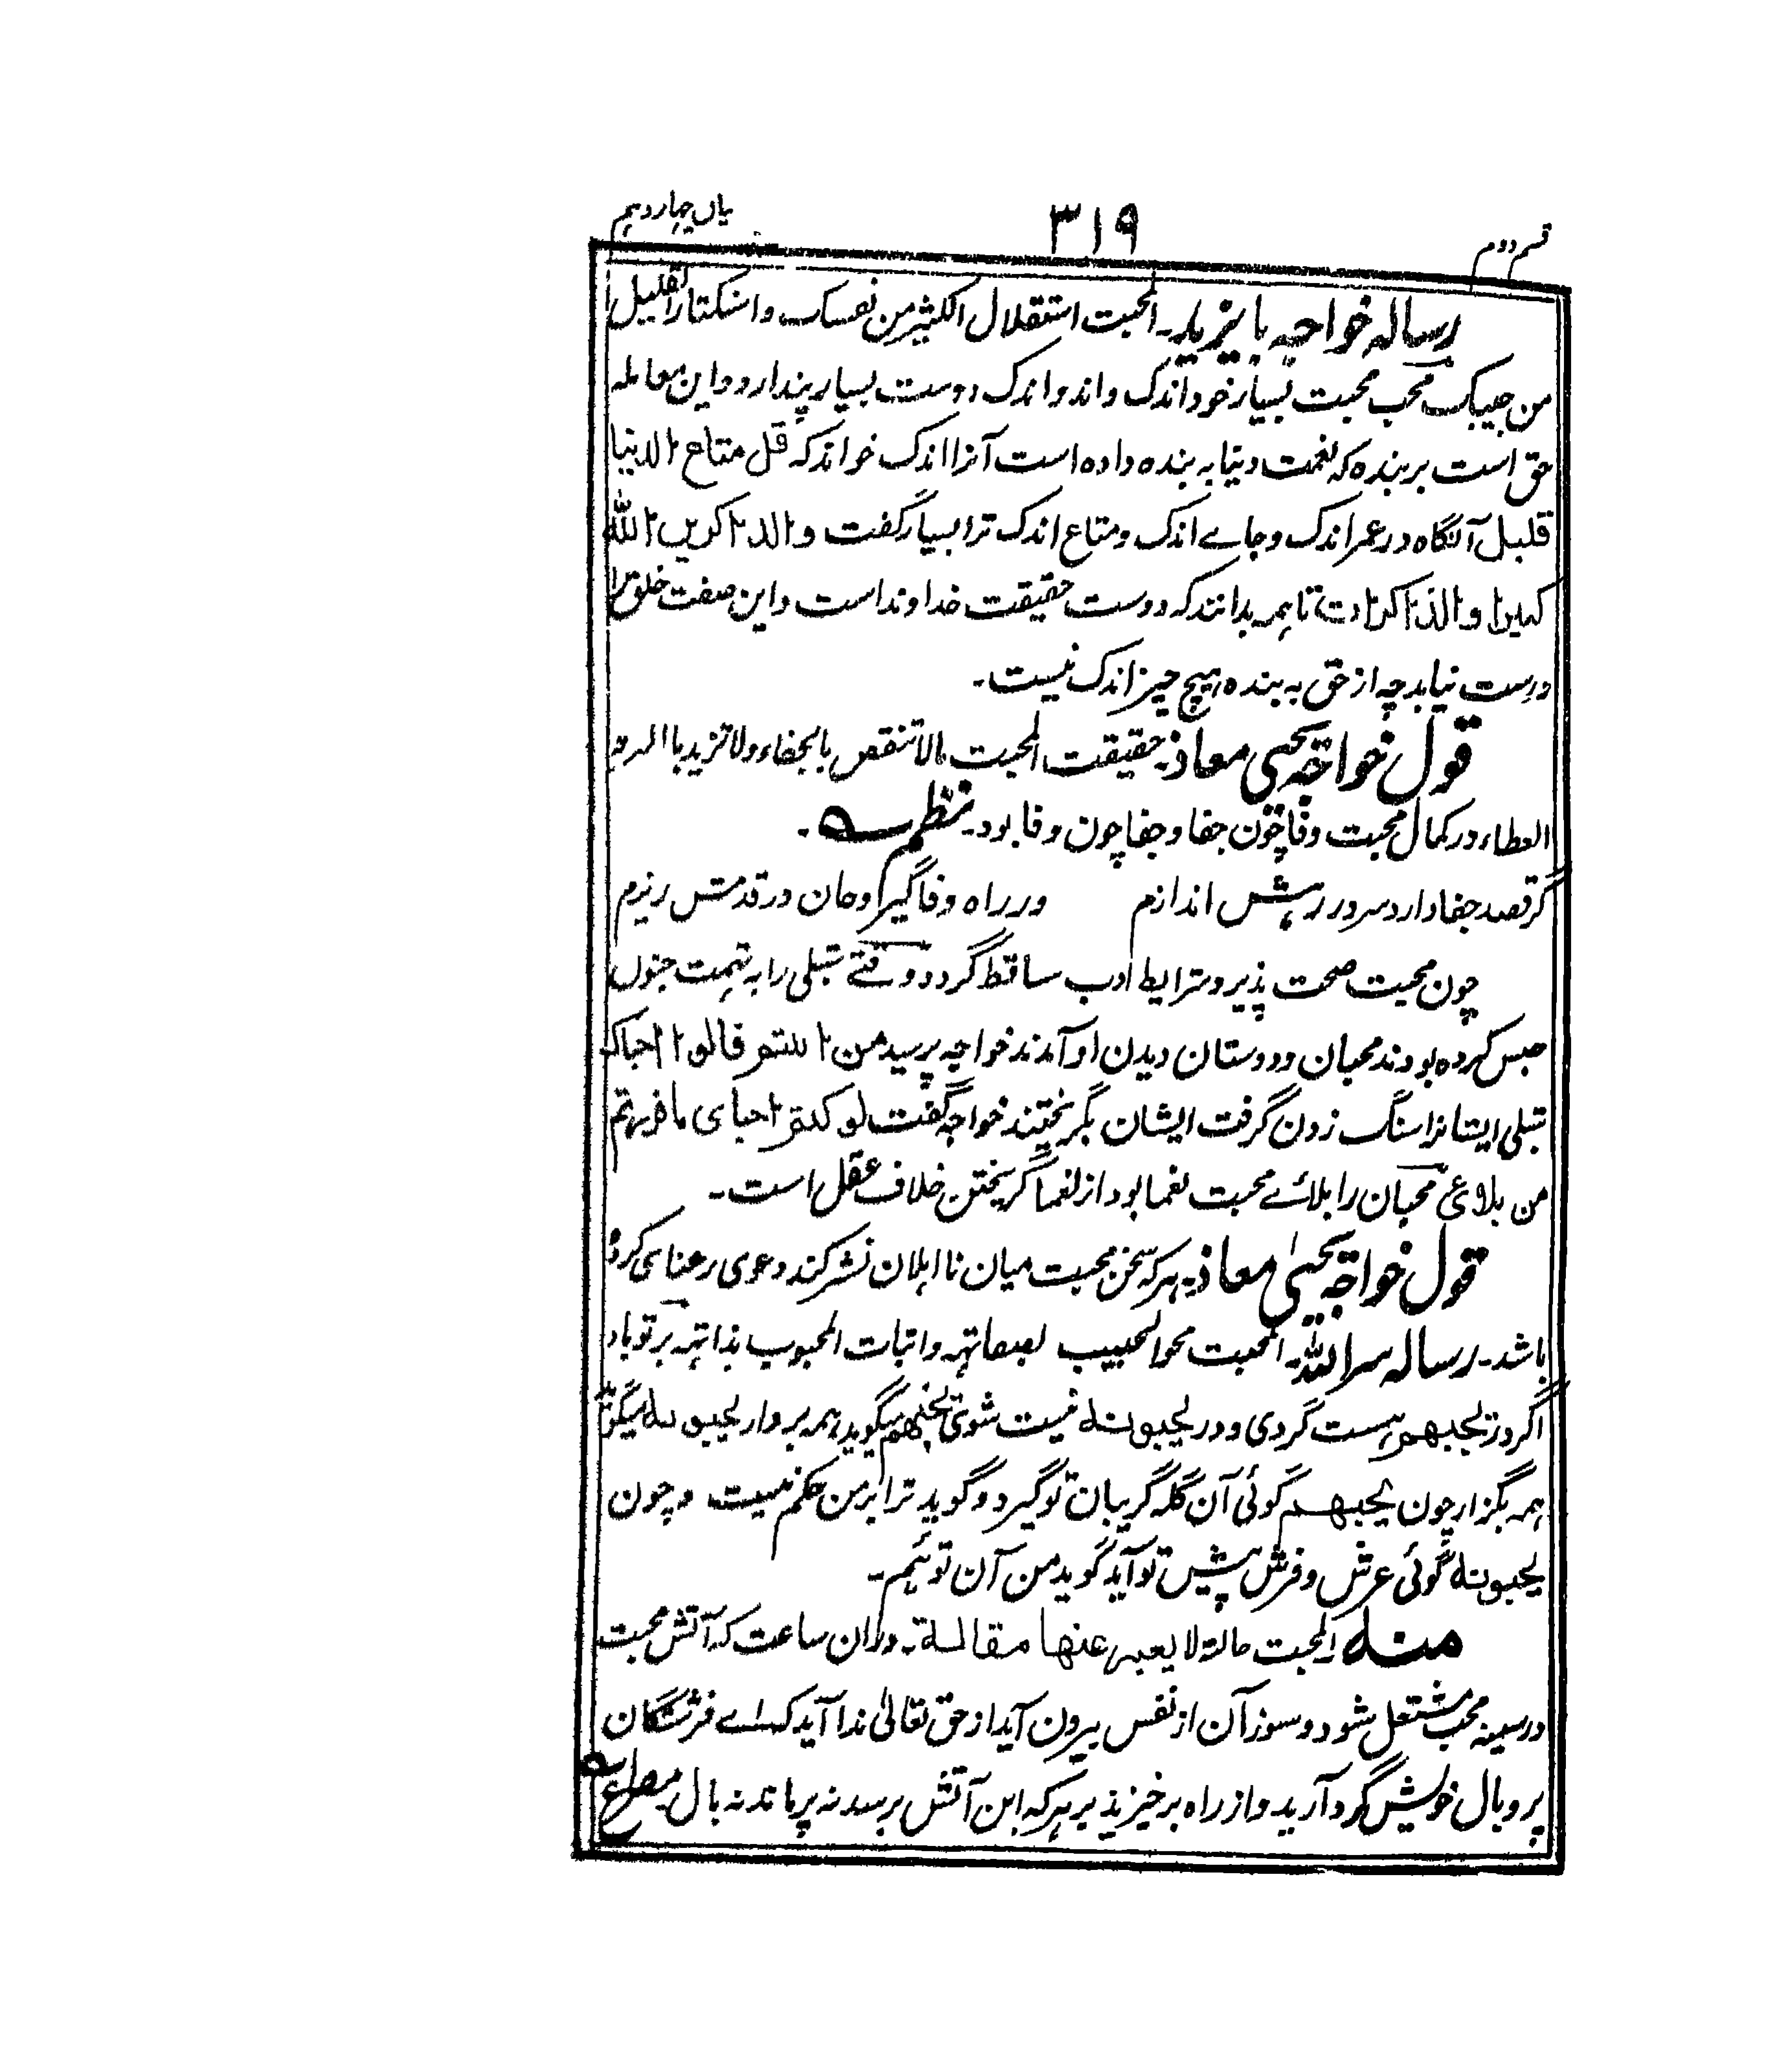 قسم دوم ۳۱۹ بیان چہاردہم
رسالہ خواجہ بایزید۔ المحبت استقلال الکثیر من نفسک و استکثار القلیل
من حبیبک محب محبت بسیار خود اندک داند و اندک دوست بسیار پندارد و این معاملہ
حق است بر بندہ کہ نعمت دنیا بہ بندہ دادہ است آنرا اندک خواند کہ قل متاع الدنیا
قلیل آنگاہ در عمر اندک و جاے اندک و متاع اندک ترا بسیار گفت والذاکرین الله
کثیرا والذاکرات تا ہمہ بدانند کہ دوست حقیقت خداوند است و این صفت خلق را
درست نیابد چہ از حق بہ بندہ ہیچ چیز اندک نیست۔
قول خواجہ یحیی معاذ۔ حقیقت المحبت مالا تنقص بالجفاء ولا تزید با
العطاء در کمال محبت وفا چون جفا و جفا چون وفا بود۔ نظم ۔
گر قصد جفا دارد سر در رہش اندازم ور راہ وفا گیرد جان در قدمش ریزم
چون محبت صحت پذیرد شرایط ادب ساقط گردد وقتے شبلی را بہ تہمت جنون
حبس کردہ بودند محبان و دوستان دیدن او آمدند خواجہ پرسید من انتم قالوا احباک
شبلی ایشانرا سنگ زدن گرفت ایشان بگریختند خواجہ گفت لو کنتم احبای ما فررتم
من بلاءی محبان را بلائے محبت نعما بود از نعما گریختن خلاف عقل است۔
قول خواجہ یحییٰ معاذ۔ ہر کہ سخن محبت میان نا اہلان نشر کند دعوی رعنای کردہ
باشد۔ رسالہ سر اللہ۔ المحبت محو المحبیب بصفاتہ و اثبات المحبوب بذاتہ بر تو باد
اگر در یحبھم ہست گردی و در یحبونہ نیست شوی یحبھم میگوید ہمہ بردار یحبونہ میگوید
ہمہ بگزار چون یحبھم گوئی آن گلہ گریبان تو گیرد و گوید ترا بر من حکم نیست و چون
یحبونہ گوئی عرش و فرش پیش تو آید گوید من آن توئیم۔
منہ المحبت حالۃ لا یعبر عنھا مقالۃ۔ دران ساعت کہ آتش محبت
در سینہ محب مشتعل شود و سوز آن از نفس بیرون آید از حق تعالیٰ ندا آید کہ اے فرشتگان
پر و بال خویش گرد آرید و از راہ برخیزید ہر کہ این آتش برسد نہ پر ماند نہ بال مصراع